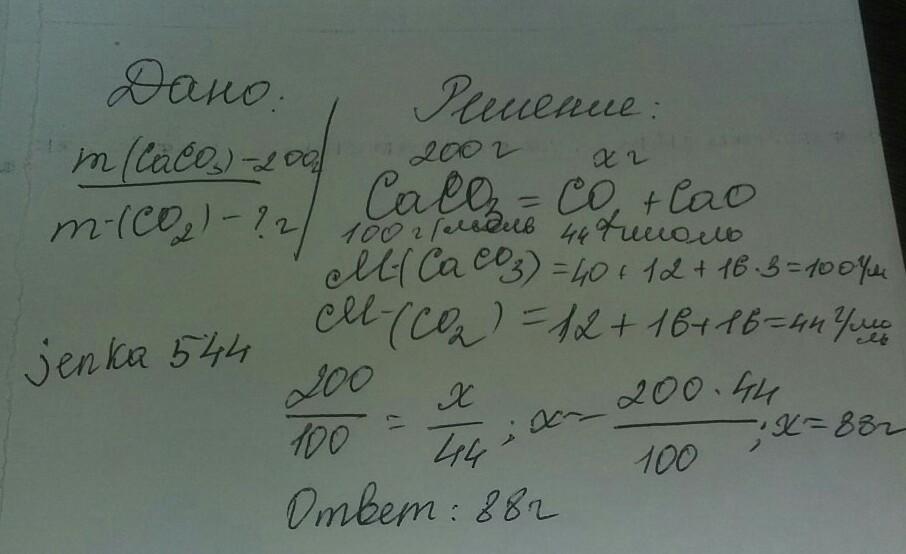 Дано:
m(CaCO3) - 200г
m-(CO2) - ? г
jenka 544
Решение:
200 г x г
CaCO3 = CO2 + CaO
100 г/моль 44 г/моль
M-(CaCO3) = 40 + 12 + 16·3 = 100 г/м
M-(CO2) = 12 + 16 + 16 = 44 г/моль
200/100 = x/44 ; x = 200·44/100 ; x = 88г
Ответ: 88г